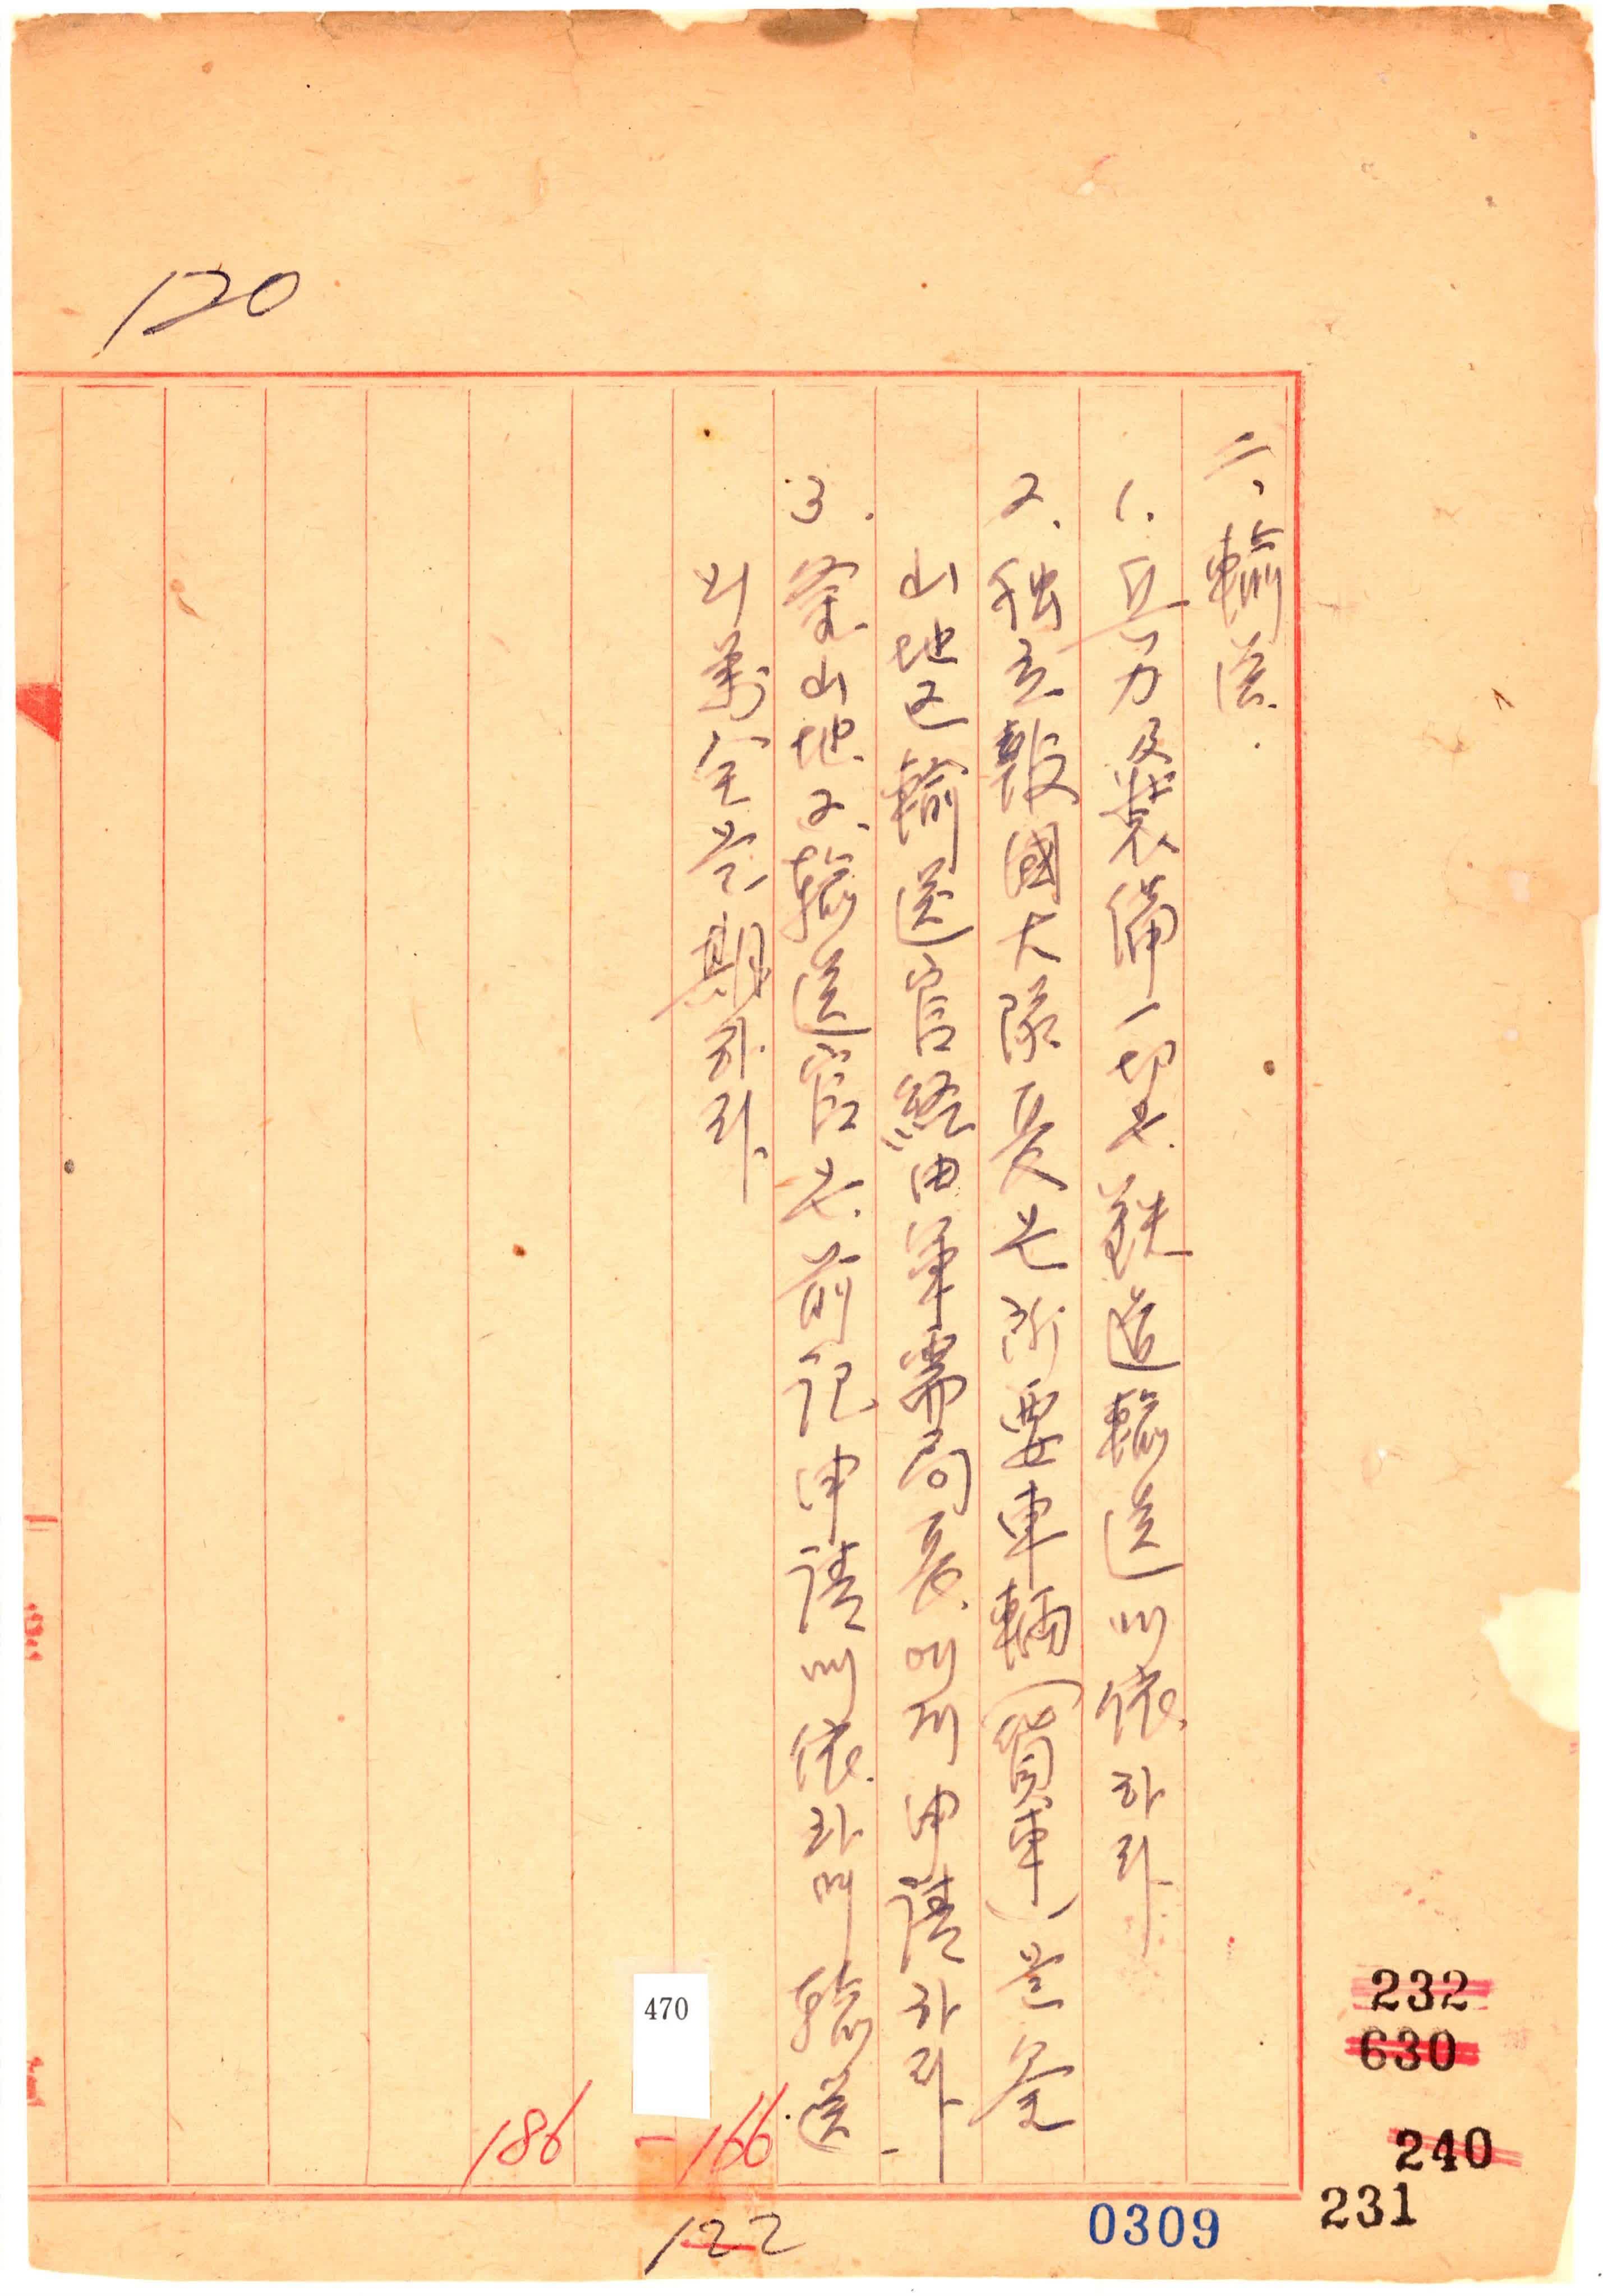 120
二、輸送.
1. 兵力及裝備一切은 鉄道輸送에 依하라
2. 独立報國大隊長은 所要車輛(貨車)을 釜
山地区輸送官 経由 軍需局長에게 申請하라.
3. 釜山地区輸送官은 前記申請에 依하며 輸送
의 萬全을 期하라.
470
186
166
122
0309
232
630
240
231